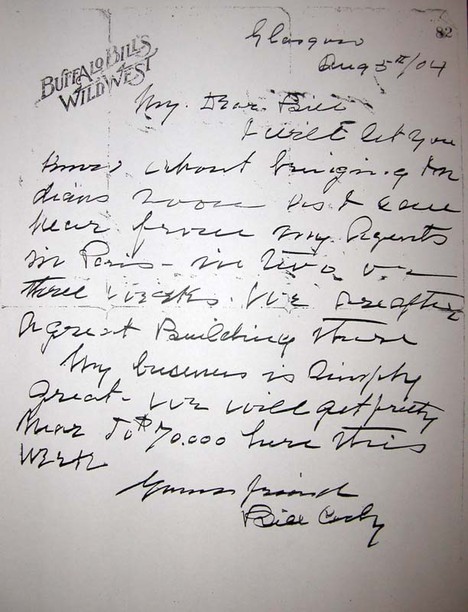 82
Glasgow
BUFFALO BILL'S
WILD WEST
Aug 5th/04
My. Dear. Bill
I will let you
know about bringing In
dians soon as I can
hear from my Agents
in Paris - in two or
three weeks. We are after
a great Building there
My business is Simply
great - We will get pretty
near to $70.000 here this
Week
Yours friend
Bill Cody